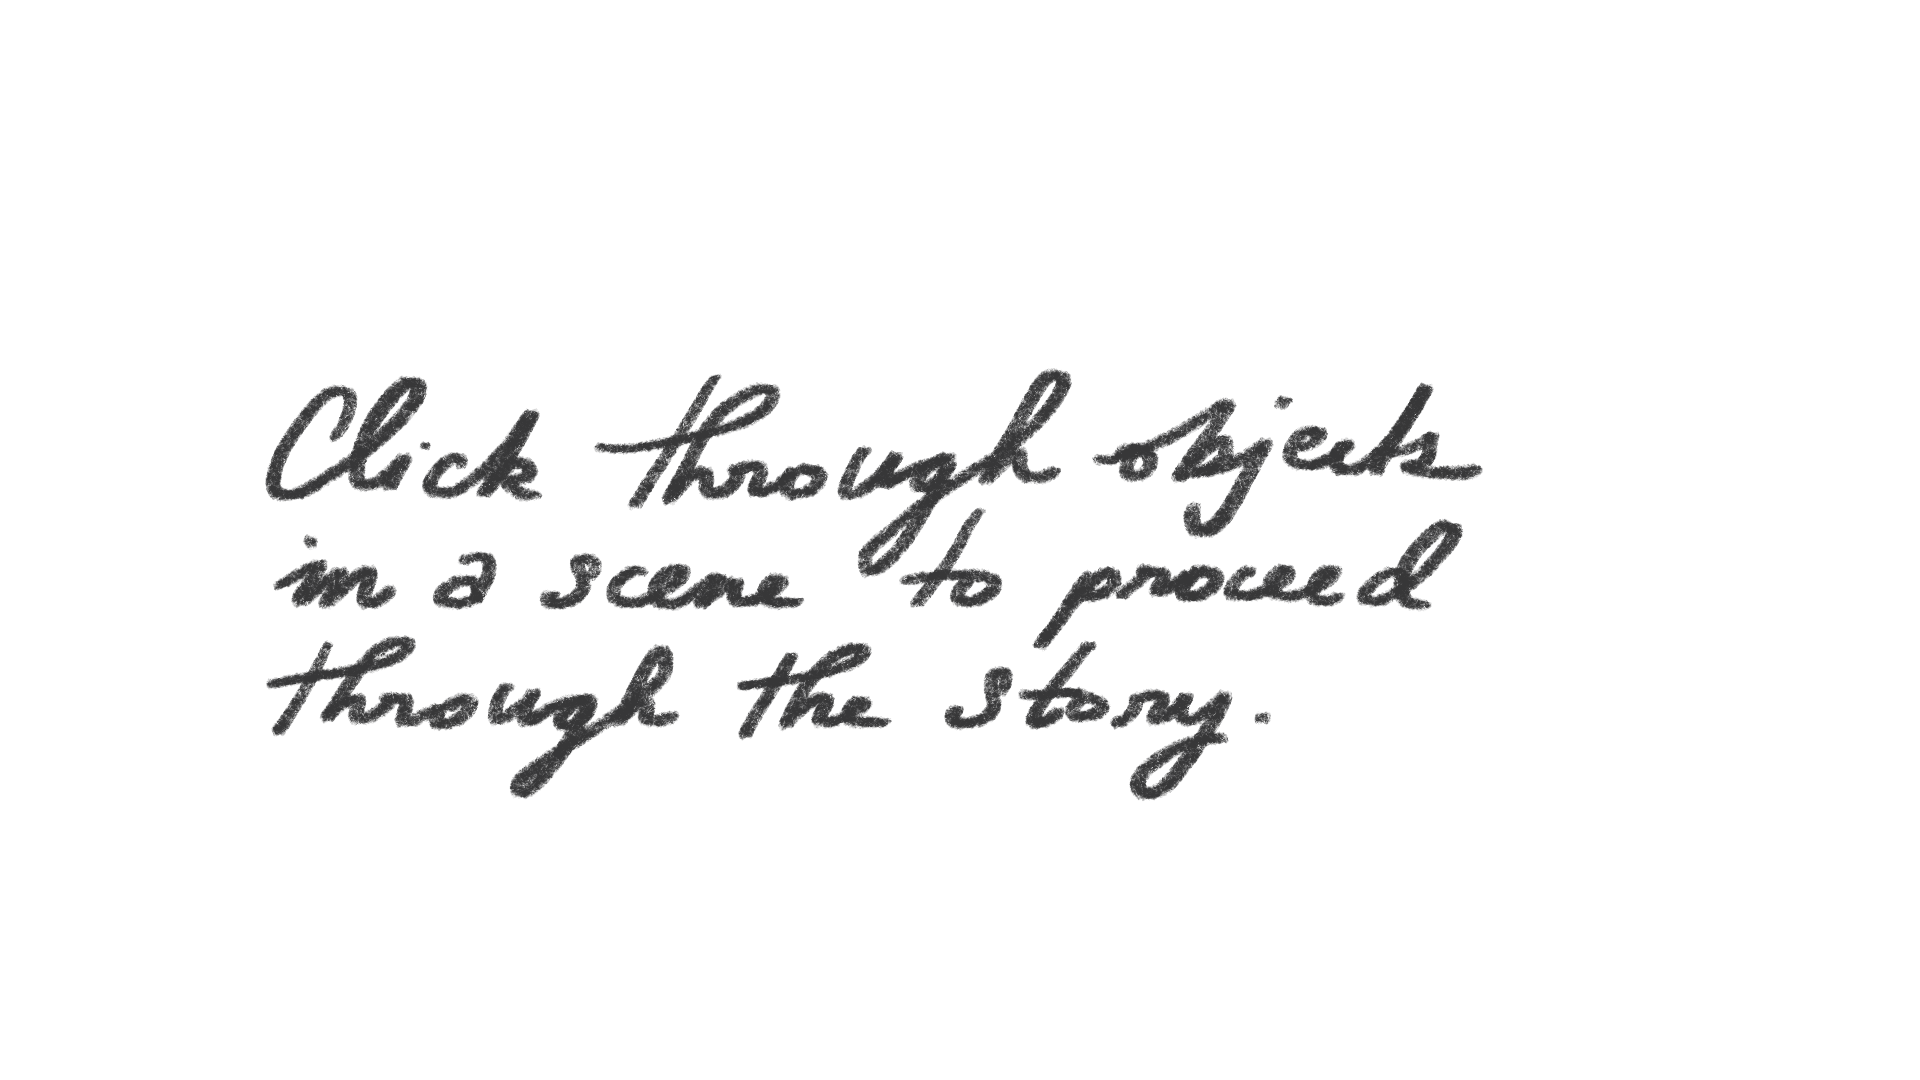 Click through objects
in a scene to proceed
through the story.